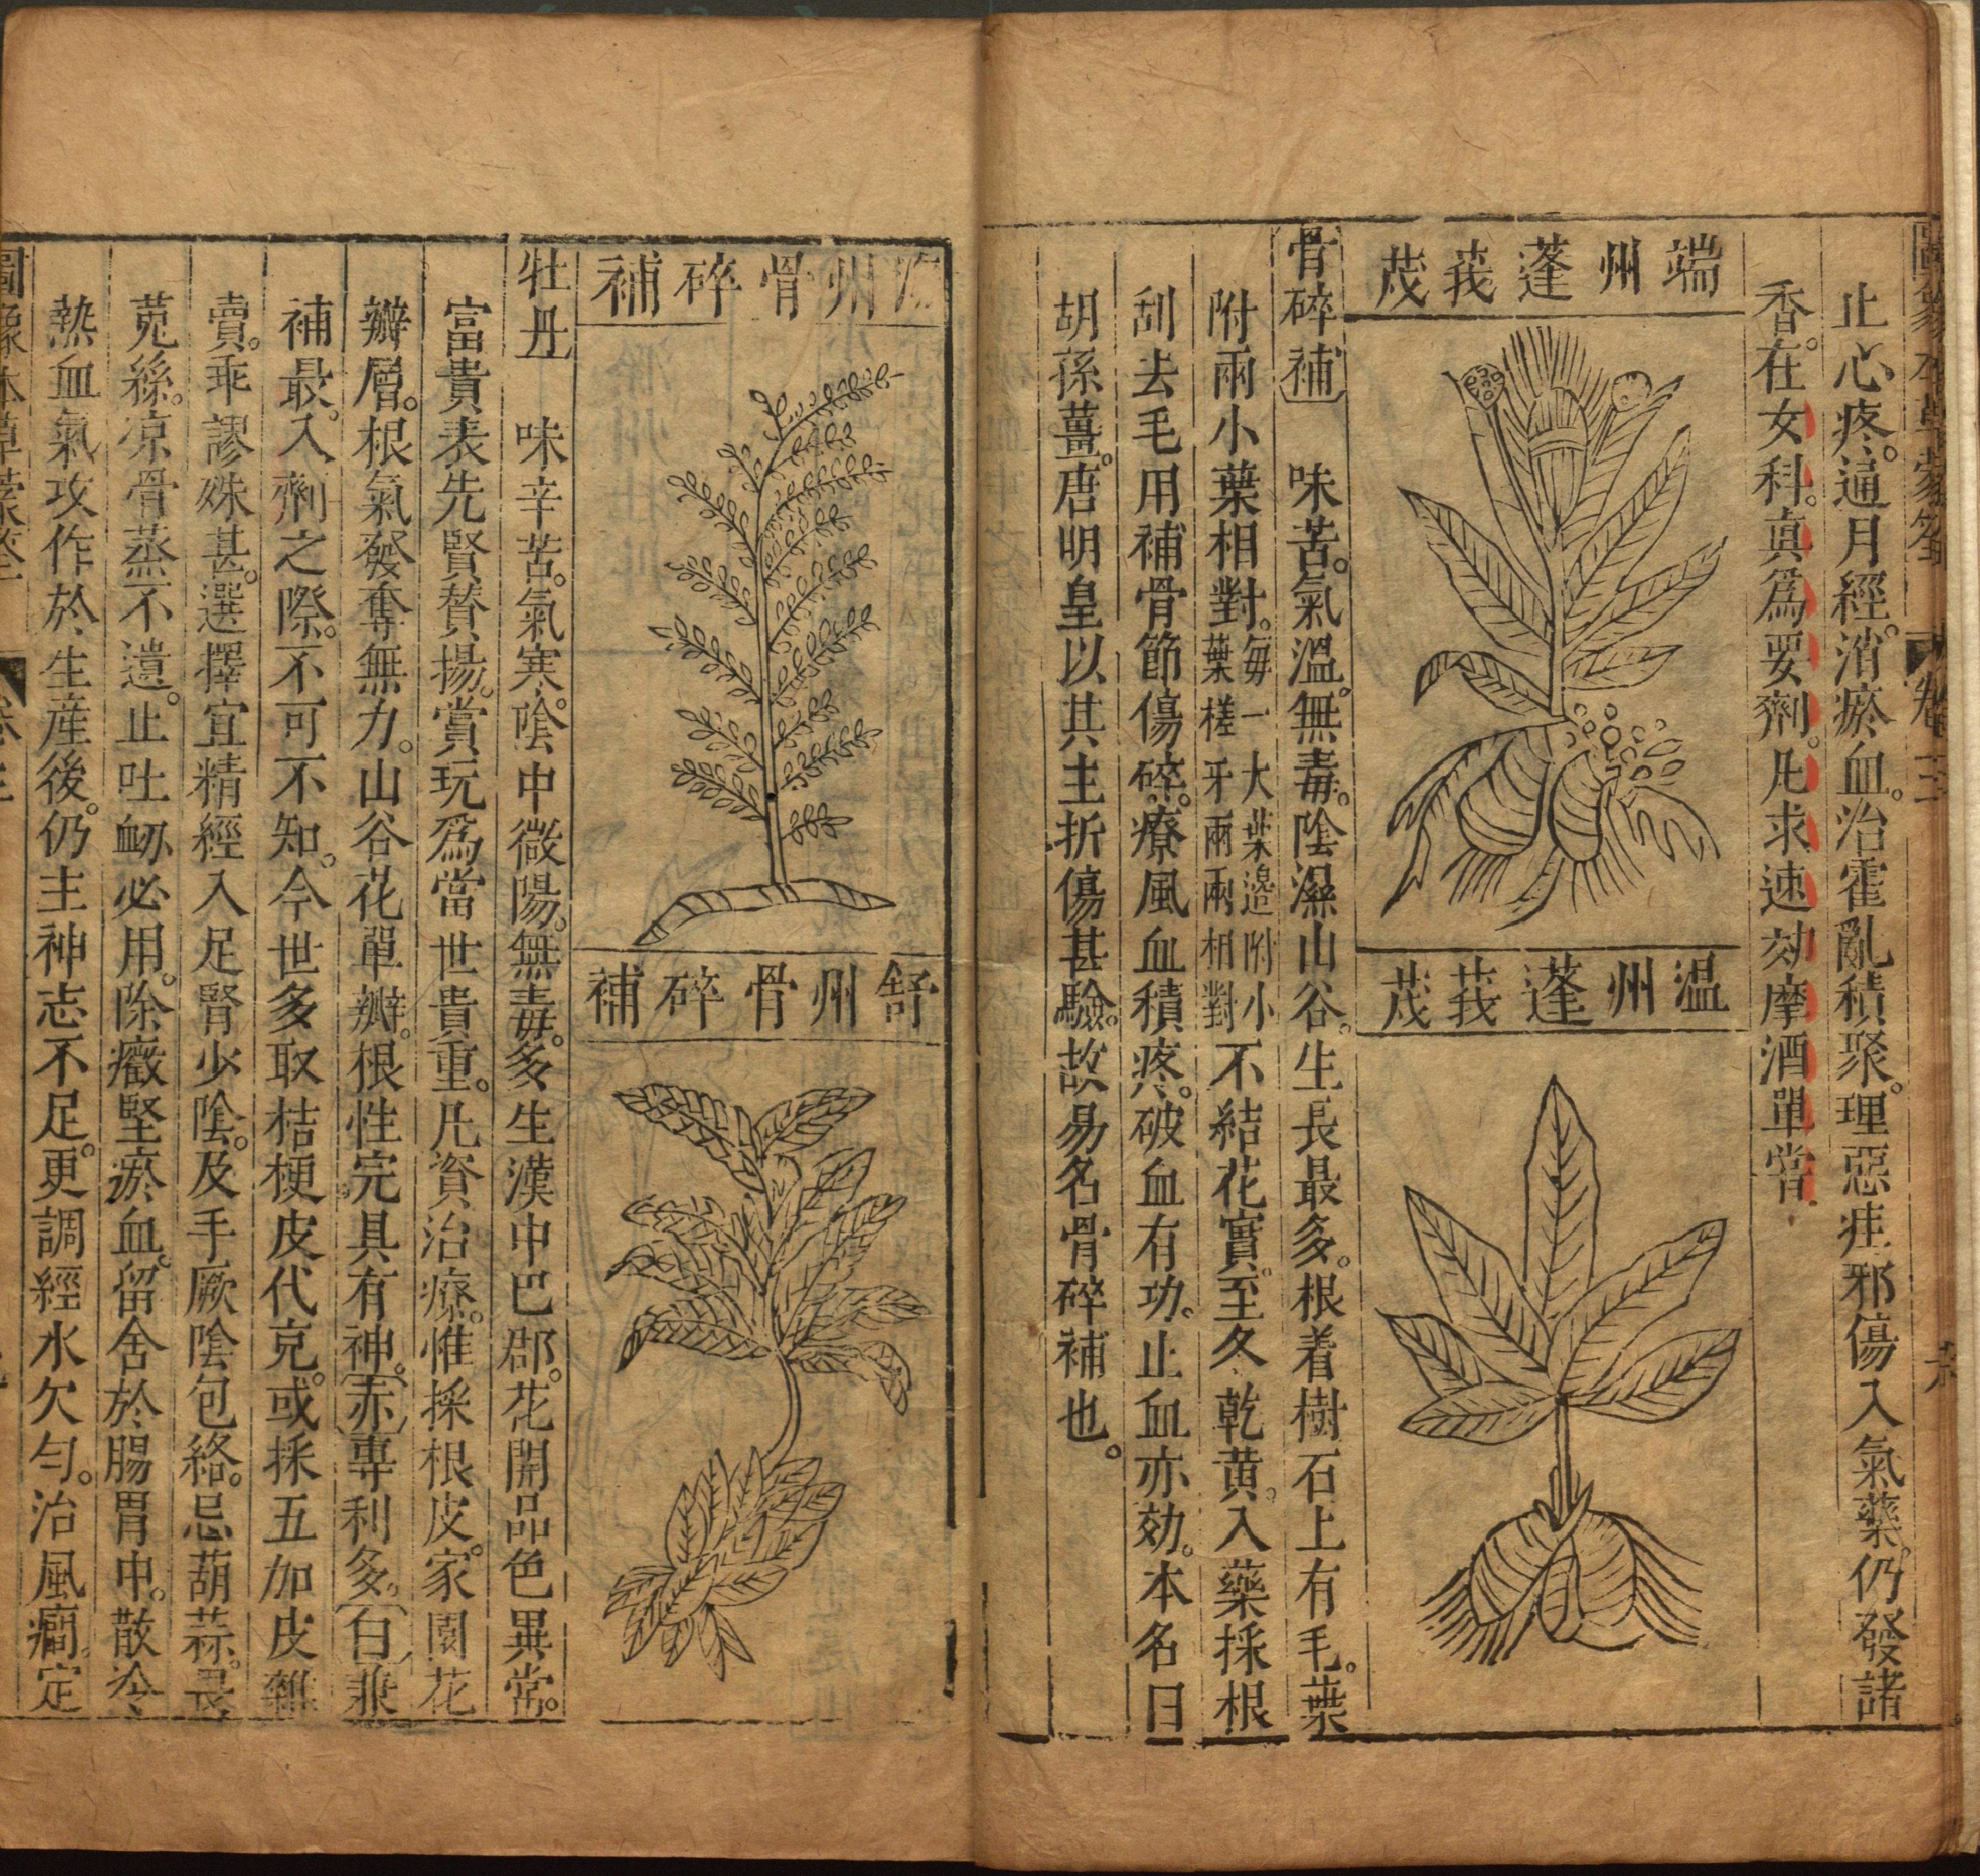 圖象本草蒙筌 卷三 六
止心疼。通月經。消瘀血。治霍亂積聚。理惡疰邪傷入氣藥。仍發諸
香。在女科。真爲要劑。凡求速効摩酒單嘗
端州蓬莪茂
温州蓬莪茂
骨碎補 味苦。氣溫。無毒。陰濕山谷。生長最多。根着樹石上有毛。葉
附兩小葉相對。每一大葉邊附小葉槎牙兩兩相對不結花實。至久乾黄。入藥採根
刮去毛用補骨節傷碎。療風血積疼。破血有功。止血亦効。本名曰
胡孫薑。唐明皇以其主折傷甚驗。故易名骨碎補也。
州骨碎補
舒州骨碎補
牡丹 味辛苦。氣寒。陰中微陽。無毒。多生漢中巴郡。花開品色異常。
富貴表先賢賛揚。賞玩爲當世貴重。凡資治療。惟採根皮。家園花
瓣層。根氣發奪無力。山谷花單瓣。根性完具有神。赤專利多。白兼
補最。入劑之際。不可不知。今世多取桔梗皮代充。或採五加皮雜
賣。乖謬殊甚。選擇宜精經入足腎少陰。及手厥陰包絡。忌葫蒜。畏
菟絲。凉骨蒸不遺。止吐衂必用。除癥堅瘀血。留舍於腸胃中。散冷
熱血氣攻作於生産後。仍主神志不足。更調經水欠匀。治風癎。定